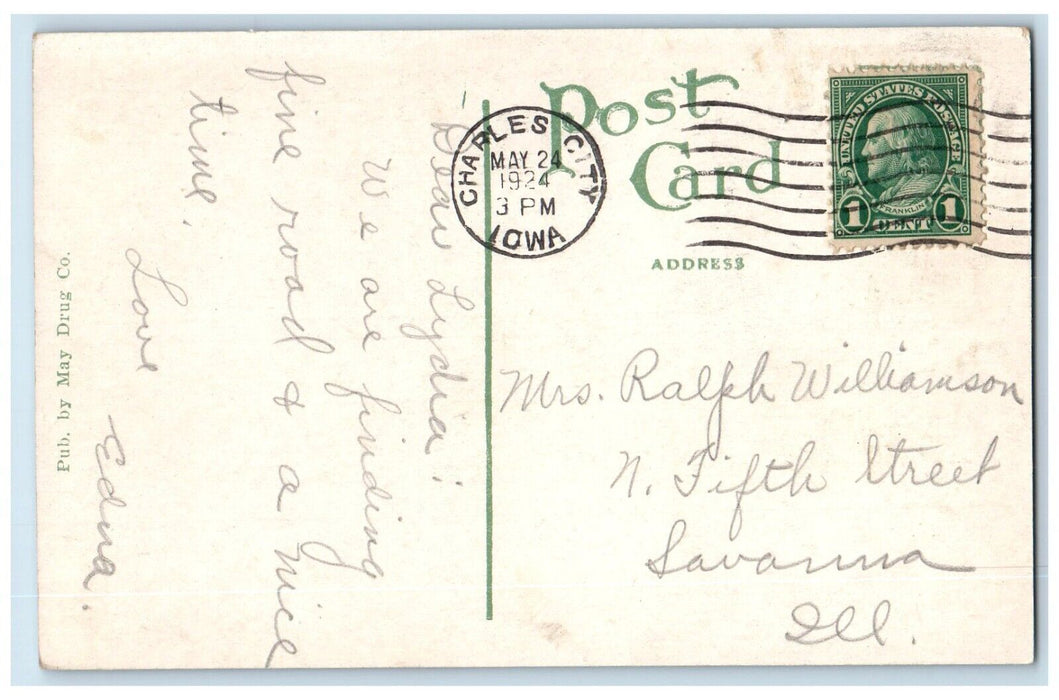 Post
Card
ADDRESS
CHARLES CITY
MAY 24
1924
3 PM
IOWA
UNITED STATES POSTAGE
FRANKLIN
1 CENT 1
Dear Lydia:
We are finding
fine road & a nice
time.
Love
Edna.
Mrs. Ralph Williamson
N. Fifth Street
Savanna
Ill.
Pub. by May Drug Co.